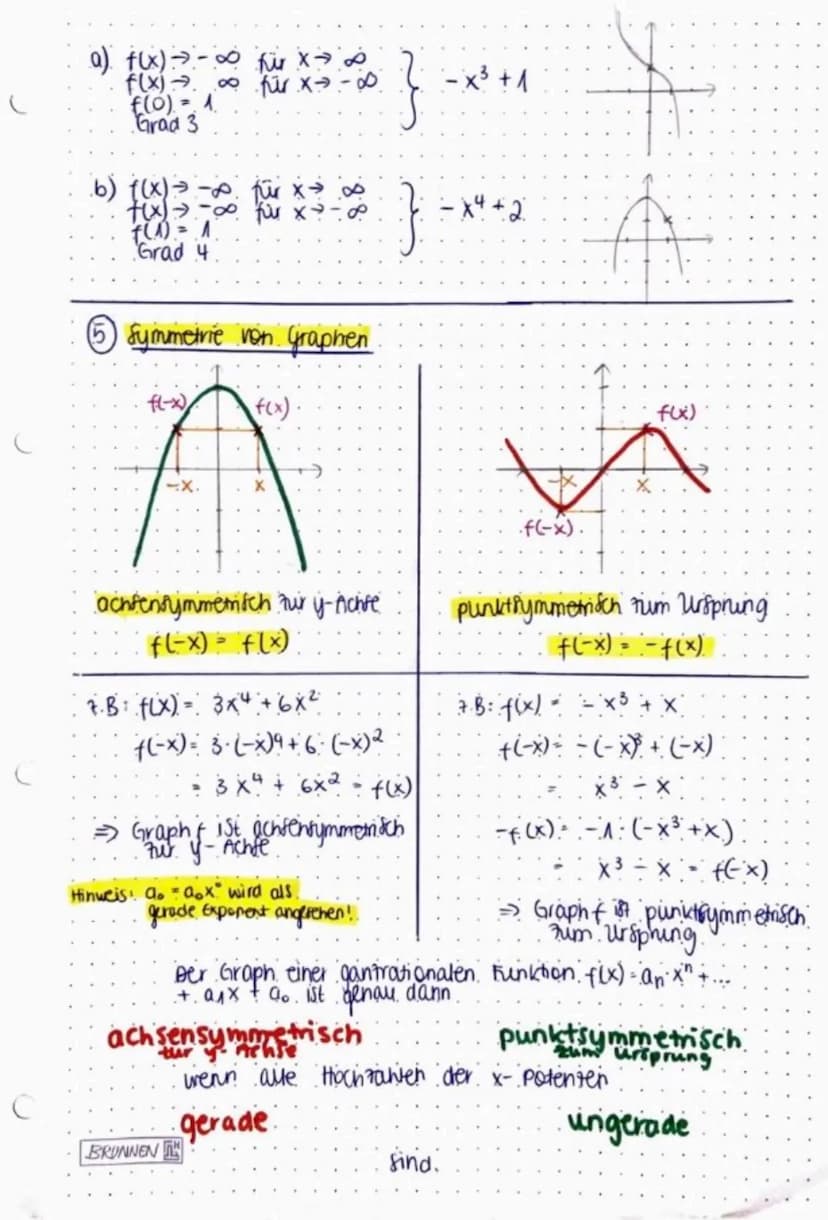 a) f(x) → -∞ für x → ∞
f(x) → ∞ für x → -∞
f(0) = 1
Grad 3
-x³ + 1
b) f(x) → -∞ für x → ∞
f(x) → -∞ für x → -∞
f(1) = 1
Grad 4
-x⁴ + 2
⑤ Symmetrie von Graphen
f(-x) f(x)
-x x
f(x)
-x x
f(-x)
achsensymmetrisch zur y-Achse
f(-x) = f(x)
punktsymmetrisch zum Ursprung
f(-x) = -f(x)
z.B: f(x) = 3x⁴ + 6x²
f(-x) = 3·(-x)⁴ + 6·(-x)²
= 3x⁴ + 6x² = f(x)
⇒ Graph f ist achsensymmetrisch
zur y-Achse
Hinweis: a₀ = a₀x⁰ wird als
gerade Exponent angesehen!
z.B: f(x) = -x³ + x
f(-x) = -(-x)³ + (-x)
= x³ - x
-f(x) = -1·(-x³ + x)
= x³ - x = f(-x)
⇒ Graph f ist punktsymmetrisch
zum Ursprung
Der Graph einer ganzrationalen Funktion f(x) = aₙ·xⁿ + ...
+ a₁x + a₀ ist genau dann
achsensymmetrisch
zur y-Achse
punktsymmetrisch
zum Ursprung
wenn alle Hochzahlen der x-Potenzen
gerade ungerade
BRUNNEN
sind.